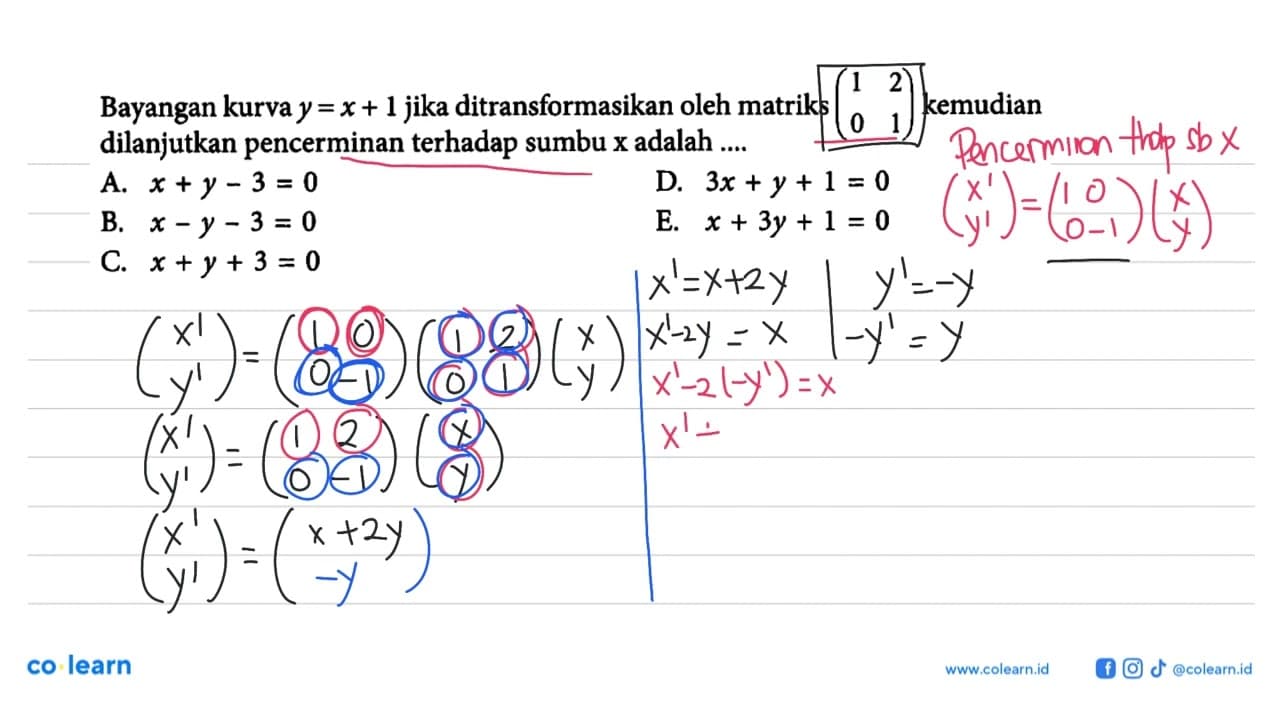 Bayangan kurva y = x + 1 jika ditransformasikan oleh matriks (1 2 / 0 1) kemudian
dilanjutkan pencerminan terhadap sumbu x adalah ....
A. x + y – 3 = 0
B. x – y – 3 = 0
C. x + y + 3 = 0
D. 3x + y + 1 = 0
E. x + 3y + 1 = 0
Pencerminan thdp sb x
(x' / y') = (1 0 / 0 -1) (x / y)
(x' / y') = (1 0 / 0 -1) (1 2 / 0 1) (x / y)
(x' / y') = (1 2 / 0 -1) (x / y)
(x' / y') = (x + 2y / -y)
x' = x + 2y
x' - 2y = x
x' - 2(-y') = x
x' ÷
y' = -y
-y' = y
co·learn
www.colearn.id
@colearn.id